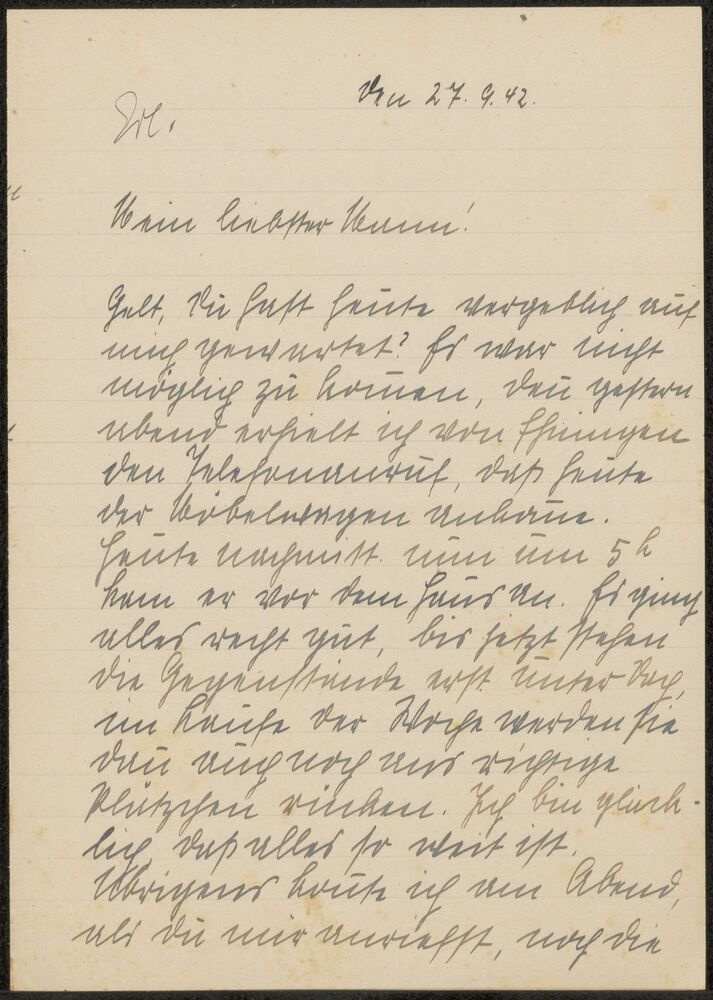 Den 27. 9. 42.
Mein liebster Mann!
Gelt, Du hast heute vergeblich auf
mich gewartet? Es war nicht
möglich zu kommen, denn gestern
abend erhielt ich von Ehningen
den Telefonanruf, daß heute
der Möbelwagen ankäme.
Heute nachmitt. nun um 5 h
kam er vor dem Haus an. Es ging
alles recht gut, bis jetzt stehen
die Gegenstände erst unter Dach,
im Laufe der Woche werden sie
dann auch noch ans richtige
Plätzchen rücken. Ich bin glück-
lich daß alles so weit ist.
Übrigens konnte ich am Abend,
als du mir anriefst, noch die